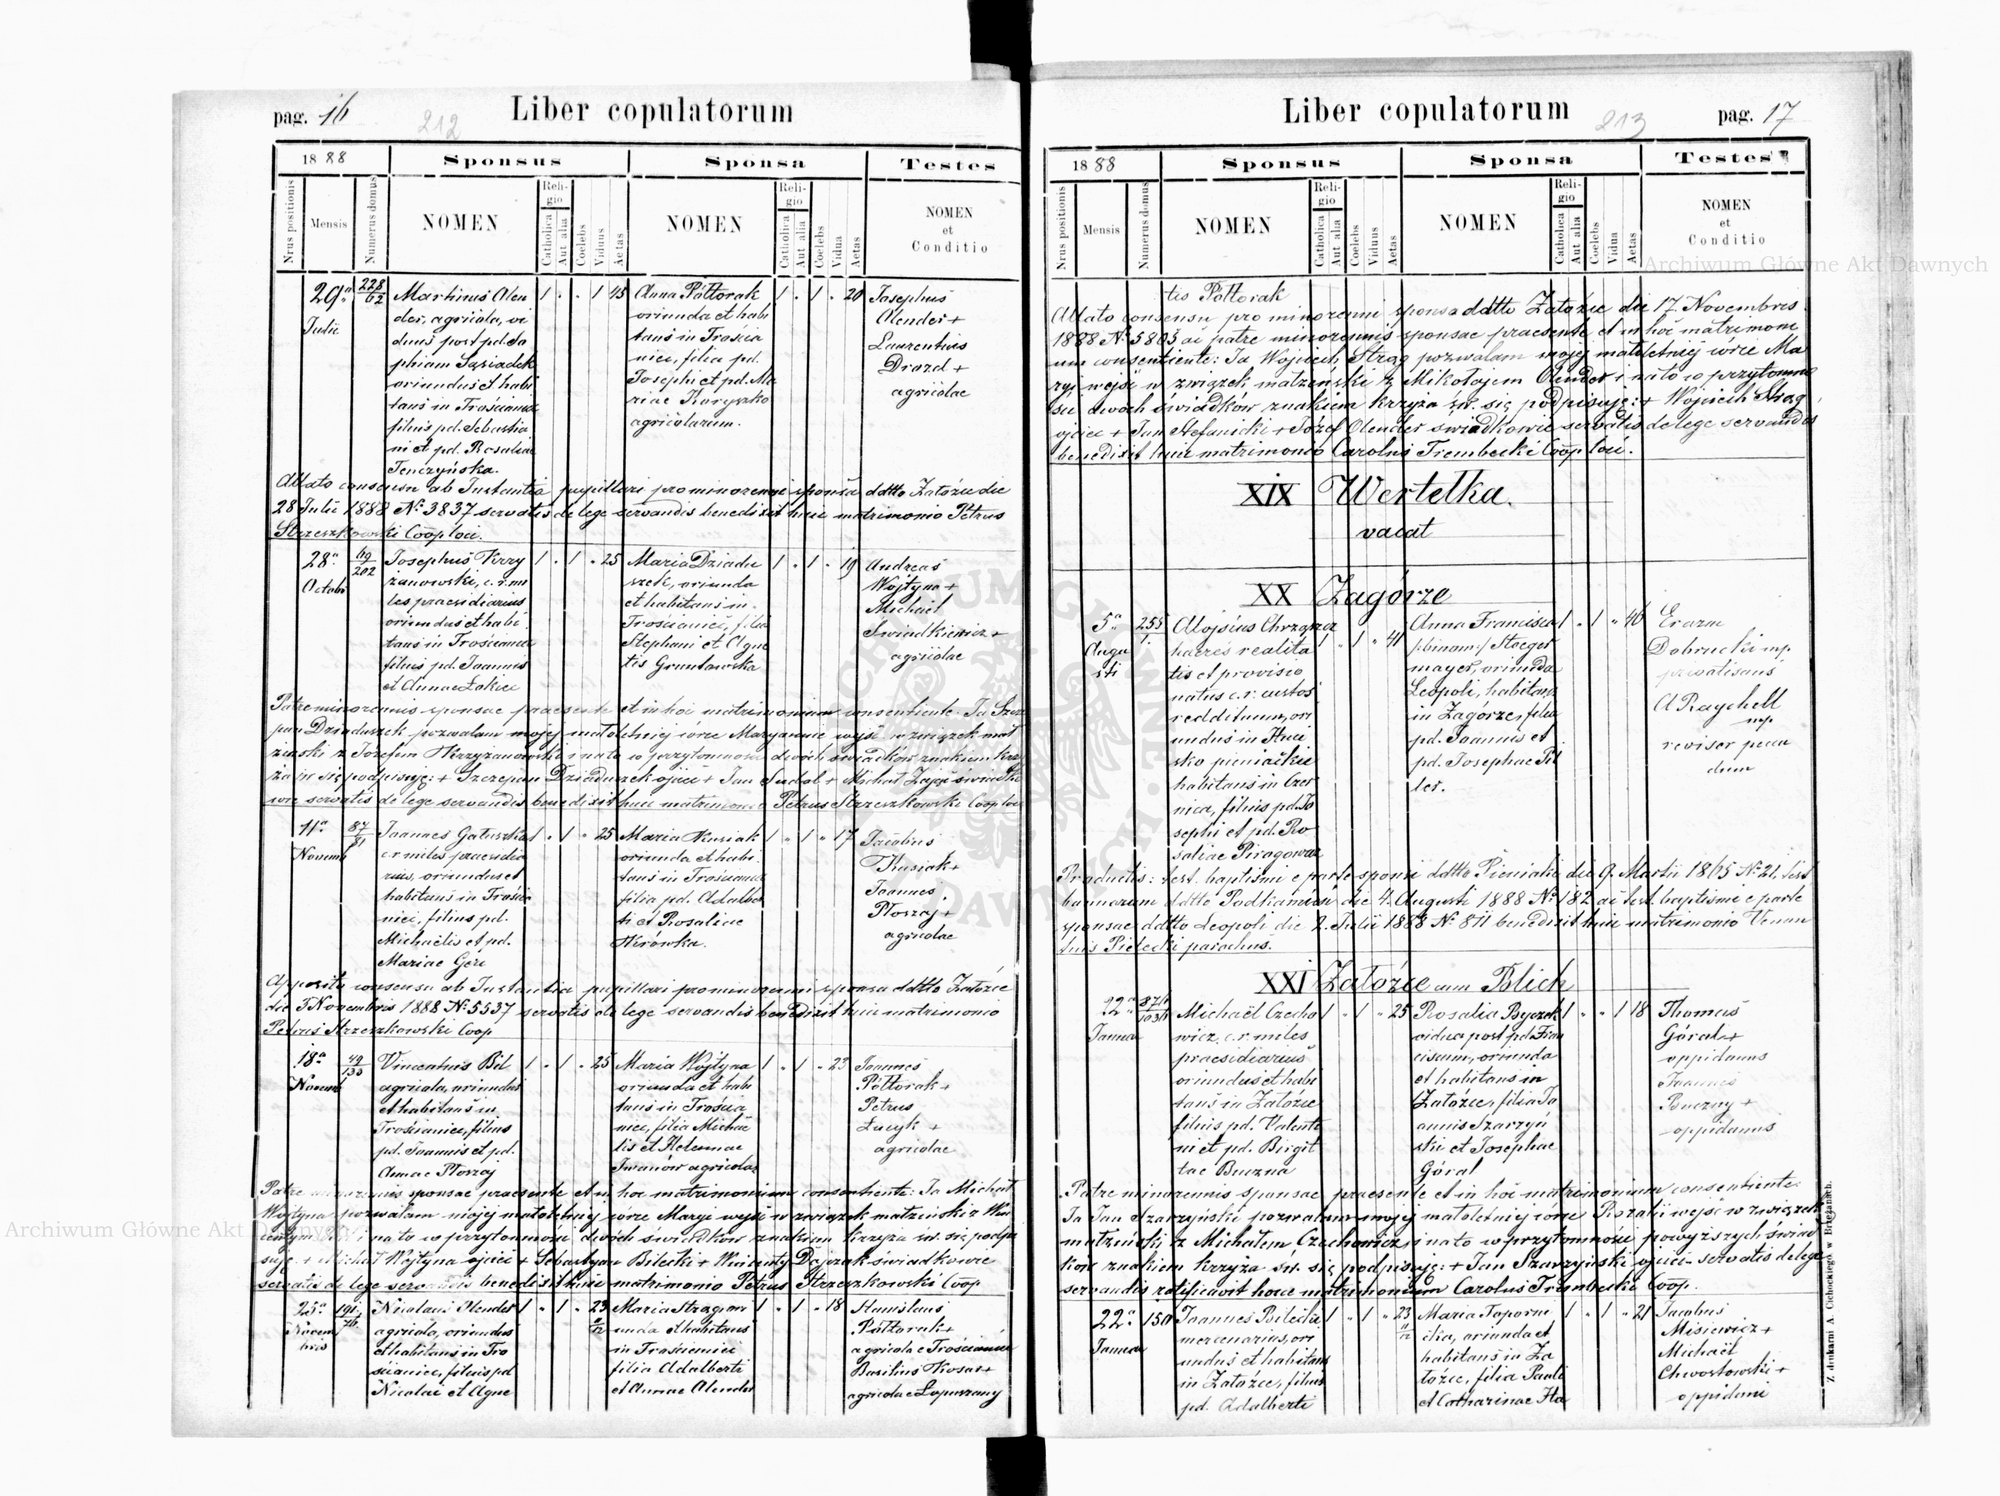 pag. 16
212
Liber copulatorum
1888
Sponsus
Sponsa
Testes
Nrus positionis
Mensis
Numerus domus
NOMEN
Religio
Catholica
Aut alia
Coelebs
Viduus
Aetas
NOMEN
Religio
Catholica
Aut alia
Coelebs
Vidua
Aetas
NOMEN
et
Conditio
29a
Julii
228
62
Martinus Olen
der, agricola, vi
duus post pd. So
phiam Sąsiadek
oriundus et habi
tans in Trościaniec
filius pd. Sebastia
ni et pd. Rosaliae
Tenczyńska.
1 . . 1 45
Anna Półtorak
oriunda et habi
tans in Trościa
niec, filia pd.
Josephi et pd. Ma
riae Koryszko
agricolarum.
1 . 1 . 20
Josephus
Olender +
Laurentius
Drozd +
agricolae
Allato consensu ab Instantia pupillari pro minorenni sponsa ddtto Załoźce die
28 Julii 1888 No 3837 servatis de lege servandis benedixit huic matrimonio Petrus
Strzeszkowski Coop loci.
28a
Octobr
69
202
Josephus Krzy
żanowski, c. r. mi
les praesidiarius
oriundus et habi
tans in Trościaniec
filius pd. Joannis
et Annae Łakiei
1 . 1 . 25
Maria Dziadu
szek, oriunda
et habitans in
Trościaniec, filia
Stephani et Agne
tis Gruntowska
1 . 1 . 19
Andreas
Wojtyna +
Michael
Świadkiewicz +
agricolae
Patre minorennis sponsae praesente et in hoc matrimonium consentiente. Ja Szcze
pan Dziaduszek pozwalam mojej małoletniej córce Maryannie wejść w związek mał
żeński z Józefem Krzyżanowski i na to w przytomności dwóch świadków znakiem krzy
ża św. się podpisuję: + Szczepan Dziaduszek ojciec + Jan Sudol + Michał Zając świadko
wie servatis de lege servandis benedixit huic matrimonio Petrus Strzeszkowski Coop loci
11a
Novemb
87
81
Joannes Gałuszka
c. r. miles praesidia
rius, oriundus et
habitans in Trościa
niec, filius pd.
Michaelis et pd.
Mariae Gere
1 . 1 . 25
Maria Kusiak
oriunda et habi
tans in Trościaniec
filia pd. Adalber
ti et Rosaliae
Hirówka.
1 . 1 . 17
Jacobus
Kusiak +
Joannes
Płoszaj +
agricolae
Apposito consensu ab Instantia pupillari pro minorenni sponsa ddtto Załoźce
die 5 Novembris 1888 No 5537 servatis de lege servandis benedixit huic matrimonio
Petrus Strzeszkowski Coop
18a
Novemb
49
130
Vincentius Bil
agricola, oriundus
et habitans in
Trościaniec, filius
pd. Joannis et pd.
Annae Płoszaj
1 . 1 . 25
Maria Wojtyna
oriunda et habi
tans in Trościa
niec, filia Michae
lis et Helenae
Iwanów agricolae
1 . 1 . 23
Joannes
Półtorak +
Petrus
Łucyk +
agricolae
Patre minorennis sponsae praesente et in hoc matrimonium consentiente: Ja Michał
Wojtyna pozwalam mojej małoletniej córce Maryi wejść w związek małżeński z Win
centym i na to w przytomności dwóch świadków znakiem krzyża św. się podpi
suję + Michał Wojtyna ojciec + Sebastyan Bilecki + Wincenty Dajczak świadkowie
servatis de lege servandis benedixit huic matrimonio Petrus Strzeszkowski Coop
25a
Novem
bris
191
76
Nicolaus Olender
agricola, oriundus
et habitans in Tro
ścianiec, filius pd
Nicolai et Agne
1 . 1 . 23
Maria Strąg ori
unda et habitans
in Trościaniec
filia Adalberti
et Annae Olender
1 . 1 . 18
Stanislaus
Półtorak +
agricola e Trościaniec
Basilius Kosar +
agricola e Łopuszany
Liber copulatorum
213
pag. 17
1888
Sponsus
Sponsa
Testes
Nrus positionis
Mensis
Numerus domus
NOMEN
Religio
Catholica
Aut alia
Coelebs
Viduus
Aetas
NOMEN
Religio
Catholica
Aut alia
Coelebs
Vidua
Aetas
NOMEN
et
Conditio
tis Półtorak
Allato consensu pro minorenni sponsa ddtto Załoźce die 17. Novembris
1888 No 5805 ac patre minorennis sponsae praesente et in hoc matrimoni
um consentiente: Ja Wojciech Strąg pozwalam mojej małoletniej córce Ma
ryi wejść w związek małżeński z Mikołajem Olender i na to w przytomno
ści dwóch świadków znakiem krzyża św. się podpisuję: + Wojciech Strąg
ojciec + Jan Stefanicki + Józef Olender świadkowie servatis de lege servandis
benedixit huic matrimonio Carolus Trembecki Coop loci.
XIX Wertełka.
vacat
XX Zagórze
5a
Augu
sti
255
1.
Alojsius Chrząszcz
haeres realita
tis et provisio
natus c. r. custos
reddituum, ori
undus in Huci
sko pieniackie
habitans in Czer
nica, filius pd. Jo
sephi et pd. Ro
saliae Piragowicz
1 . 1 . 41
Anna Francisca
/:binom:/ Stoeger
mayer, oriunda
Leopoli, habitans
in Zagórze, filia
pd. Joannis et
pd. Josephae Pil
ler.
1 . 1 . 46
Erazm
Dobrucki mp
privatisans
A Raychell
mp
revisor pecu
dum
Productis: test. baptismi e parte sponsi ddtto Pieniaki die 9. Martii 1865 No 21, test
bannorum ddtto Podkamień die 4. Augusti 1888 No 182 ac test. baptismi e parte
sponsae ddtto Leopoli die 2. Julii 1888 No 811 benedixit huic matrimonio Venan
tius Pielecki parochus.
XXI Załoźce cum Blich
22a
Janua
Michael Czecho
wicz, c. r. miles
praesidiarius
oriundus et habi
tans in Załoźce
filius pd. Valenti
ni et pd. Birgit
tae Buczna
1 . 1 . 25
Rosalia Byczek
vidua post pd. Fran
ciscum, oriunda
et habitans in
Załoźce, filia Jo
annis Szarzyń
ski et Josephae
Góral
1 . . 1 18
Thomas
Góral +
oppidanus
Joannes
Buczny +
oppidanus
Patre minorennis sponsae praesente et in hoc matrimonium consentiente:
Ja Jan Szarzyński pozwalam mojej małoletniej córce Rozalii wejść w związek
małżeński z Michałem Czechowicz i na to w przytomności powyższych świad
ków znakiem krzyża św. się podpisuję: + Jan Szarzyński ojciec servatis de lege
servandis ratificavit hocce matrimonium Carolus Trembecki Coop.
22a
Januar
150
Joannes Bilecki
mercenarius, ori
undus et habitans
in Załoźce, filius
pd. Adalberti
1 . 1 . 23
Maria Toporni
cka, oriunda et
habitans in Za
łoźce, filia Pauli
et Catharinae Ha
1 . 1 . 21
Jacobus
Misiewicz +
Michael
Chwostowski +
oppidani
Z drukarni A. Cichockiego w Brzeżanach.
Archiwum Główne Akt Dawnych
Archiwum Główne Akt Dawnych
ARCHIWUM GŁÓWNE
AKT DAWNYCH